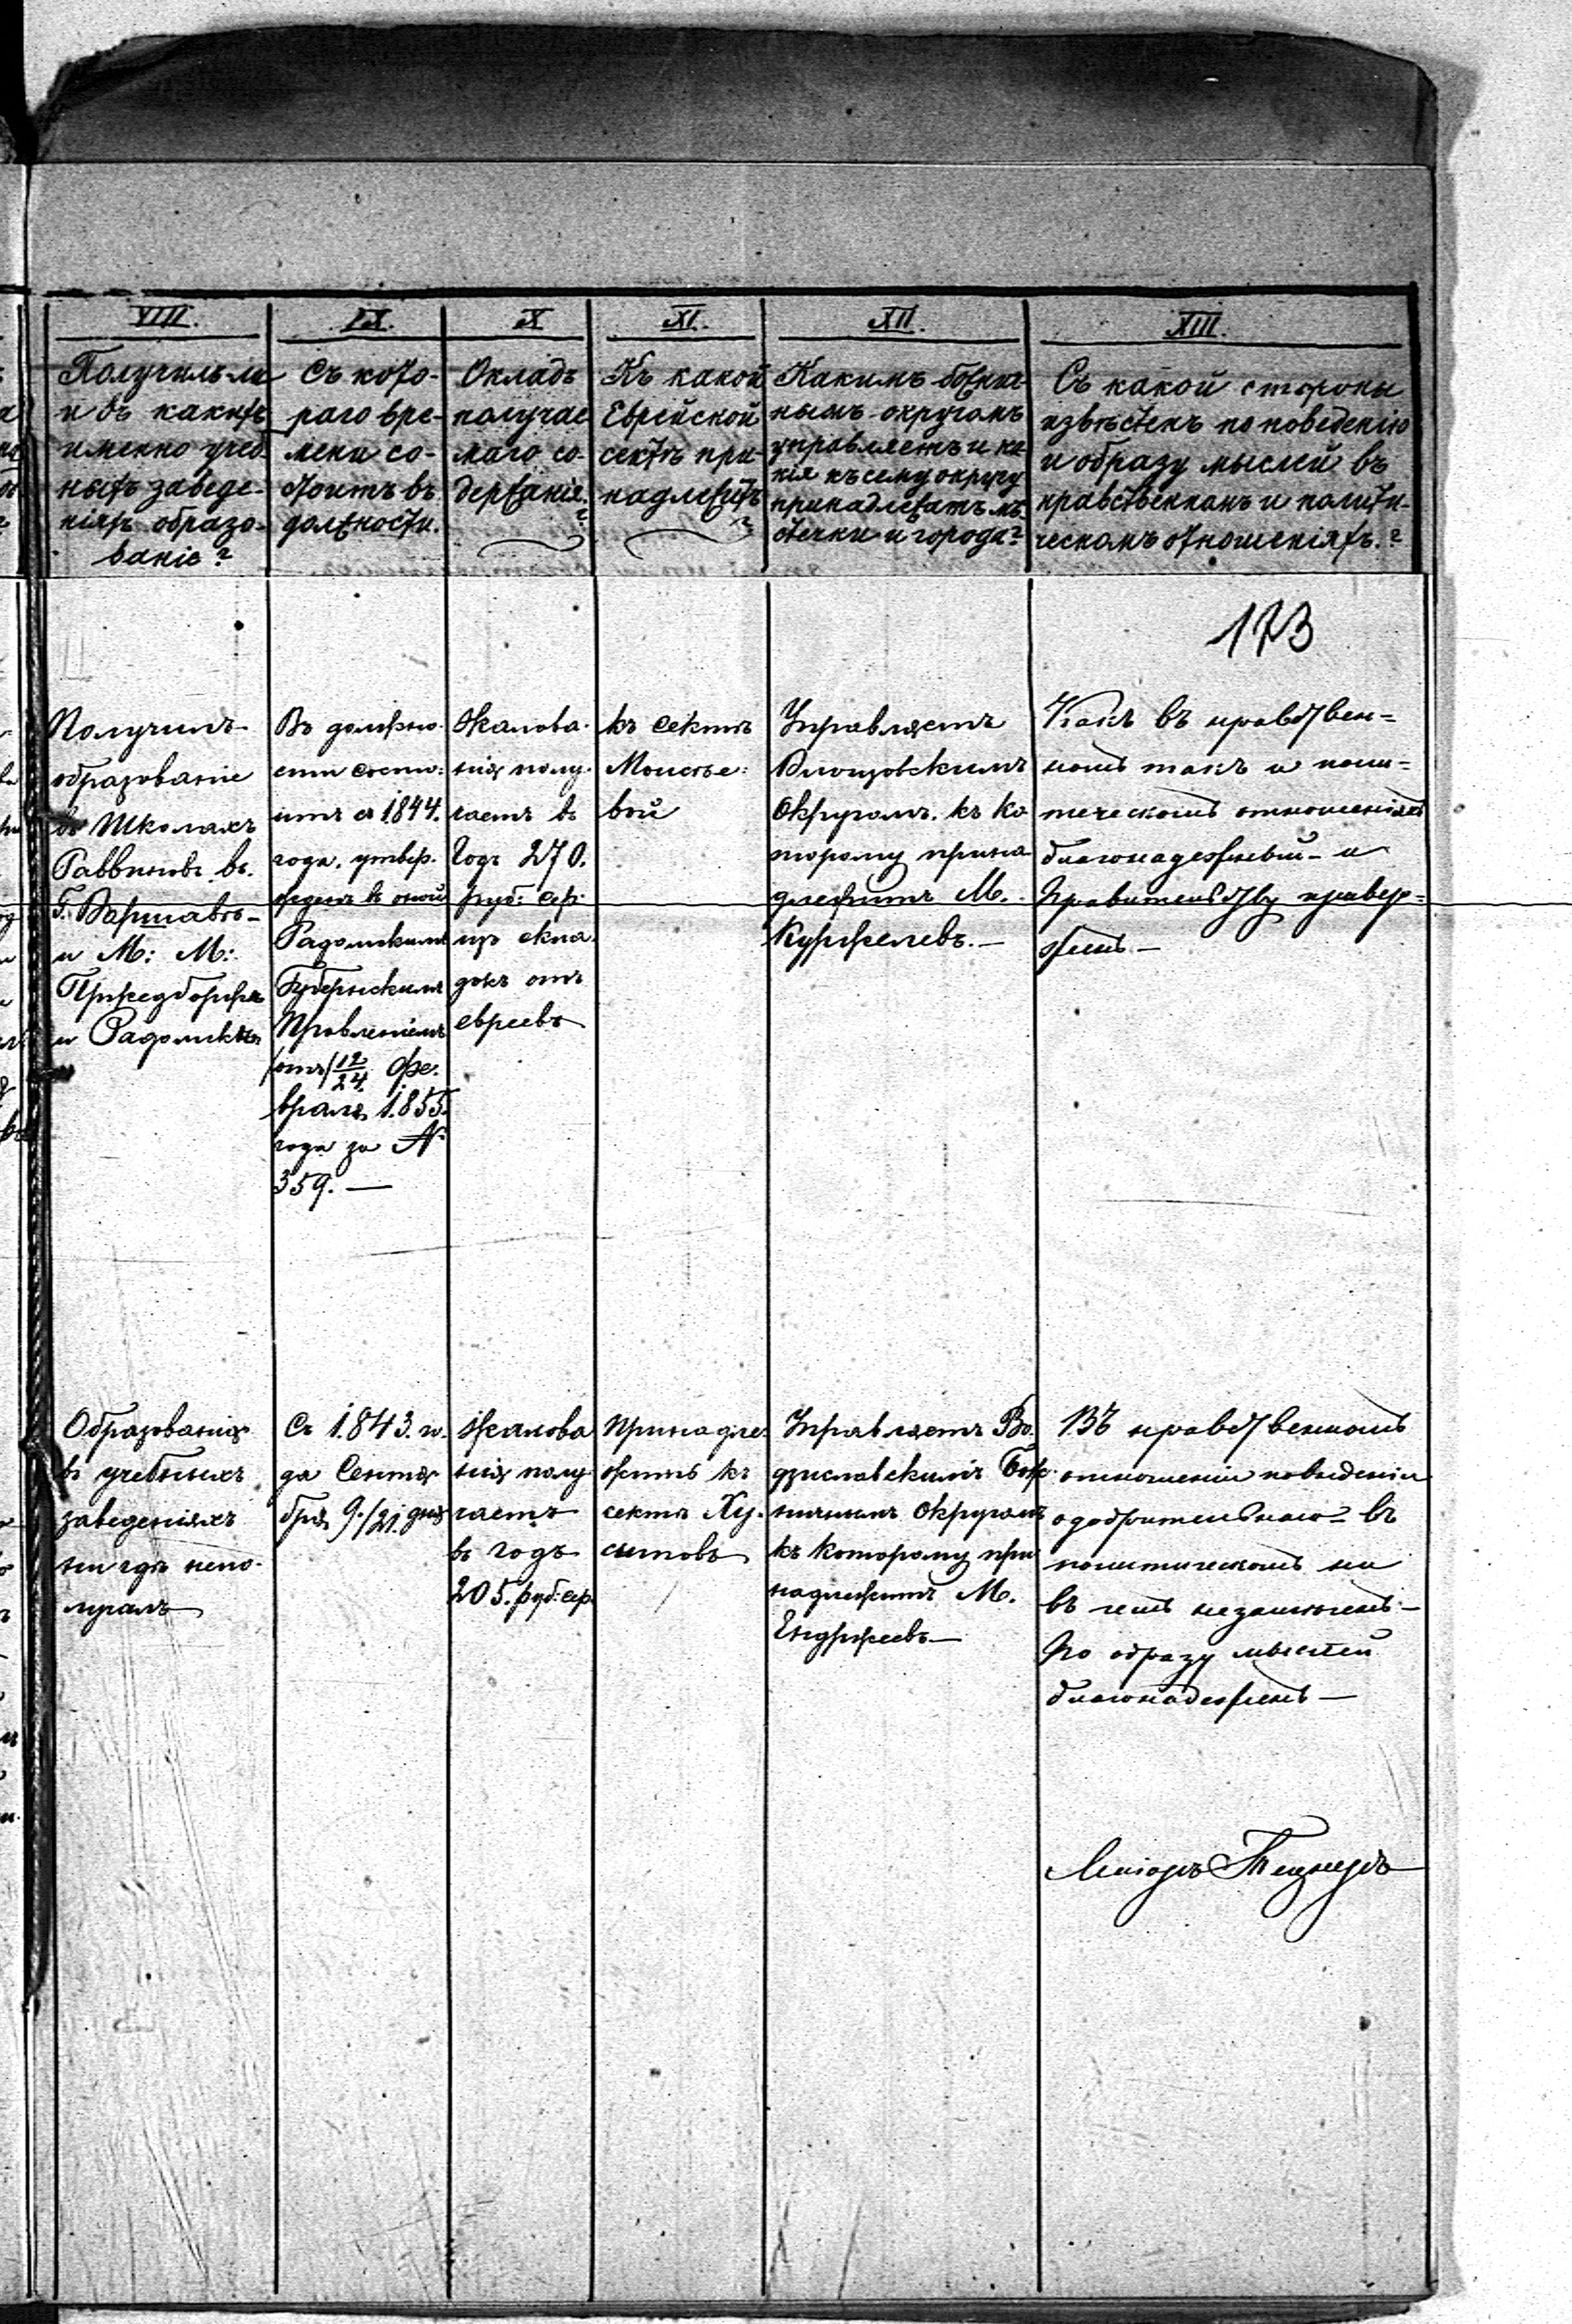 VIII.
Получилъ-ли
и въ какихъ
именно учеб
ныхъ заведе-
ніяхъ образо-
ваніе?
IX.
Съ кото-
раго вре-
мени со-
стоитъ въ
должности.
X
Окладъ
получае
маго со-
держанія.
?
XI.
Къ какой
Еврейской
сектѣ при-
надлежитъ
?
XII.
Какимъ божнич-
нымъ округомъ
управляетъ и ка-
кія къ сему округу
принадлежатъ мѣ-
стечки и города?
XIII.
Съ какой стороны
извѣстенъ по поведенію
и образу мыслей въ
нравственномъ и полити-
ческомъ отношеніяхъ.?
173
Получилъ
образованіе
въ Школахъ
Раввиновъ въ
Г. Варшавѣ-
и М: М:
Пржедборжѣ
и Радомскѣ
Въ должно-
сти состо:
итъ съ 1844.
года, утвер.
жденъ въ оной
Радомскимъ
Губернскимъ
Правленіемъ
отъ 12/24 Фе.
враля 1.855.
года за №
359. —
Жалова-
нія полу-
чаетъ въ
Годъ 270.
руб: сер:
изъ скла
докъ отъ
евреевъ
къ сектѣ
Моисѣе:
вой
Управляетъ
Влощовскимъ
Округомъ. къ ко
торому прина
длежитъ М.
Куржелевъ.—
Какъ въ нравствен=
номъ такъ и поли=
тическомъ отношеніяхъ
благонадежный - и
Правительству привер=
женъ —
Образованія
въ учебныхъ
заведеніяхъ
ни гдѣ непо-
лучалъ
Съ 1.843. го.
да Сентя
бря 9./21. дня
Жалова
нія полу
чаетъ
въ годъ
205. руб: сер
Принадле-
житъ къ
сектѣ Ху.
ситовъ
Управляетъ Во.
дзиславскимъ Бож-
ничнымъ Округомъ
къ которому при
надлежитъ М.
Енджеевъ—
Въ нравственномъ
отношеніи поведенія
одобрительнаго = въ
политическомъ ни
въ чемъ незамѣченъ—
По образу мыслей
благонадеженъ —